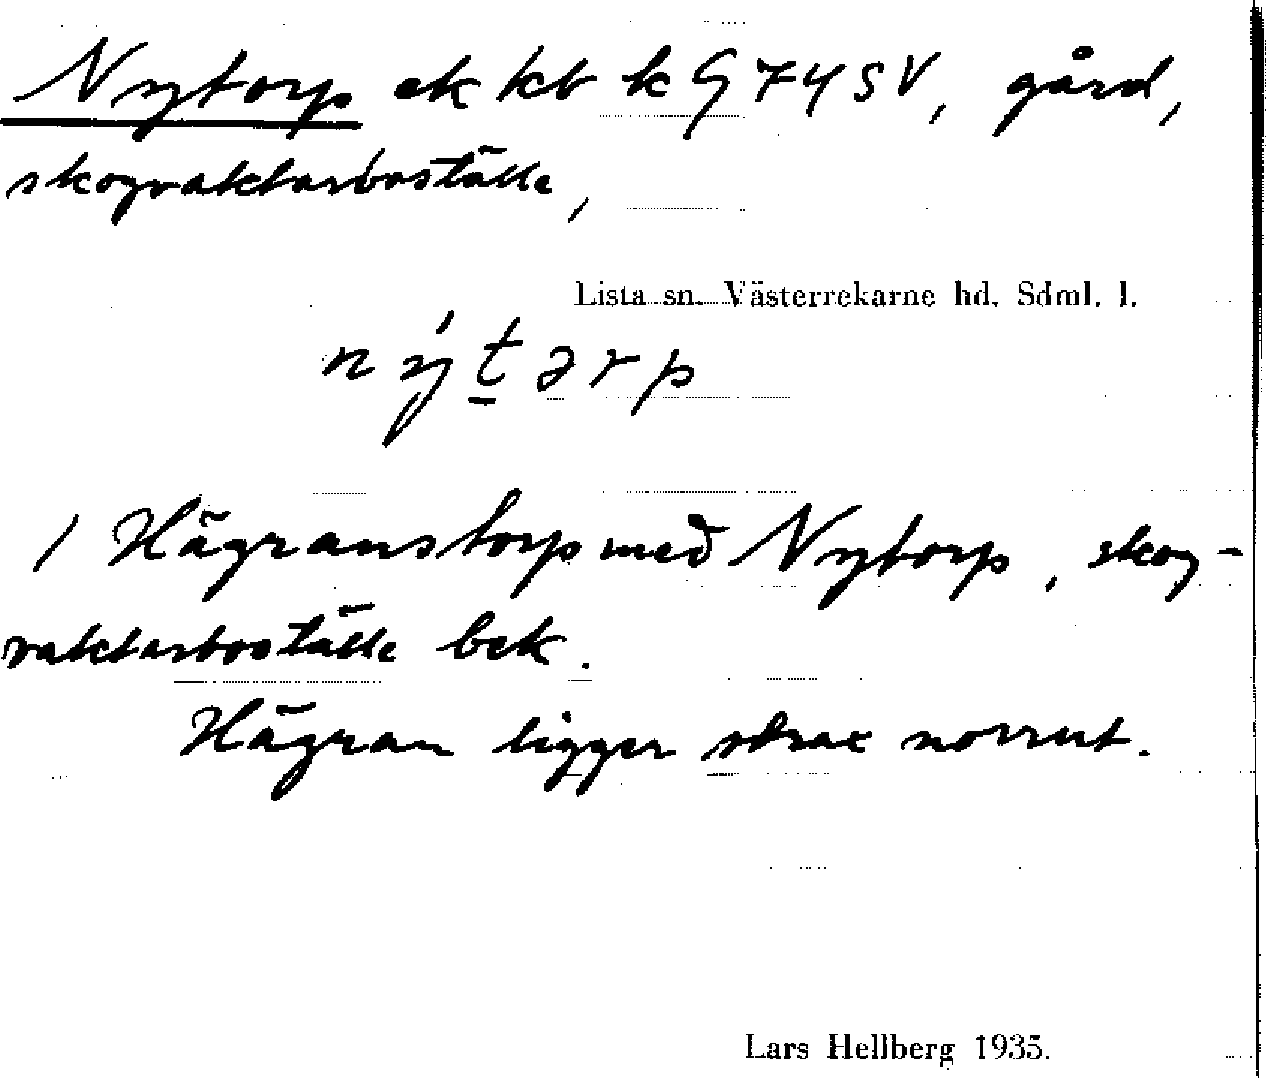 Nytorp ek kb k G 74 SV, gård,
skogvaktarboställe,
Lista sn. Västerrekarne hd. Sdml. l.
nýtərp
/ Hägranstorp med Nytorp, skog-
vaktarboställe bek.
Hägran ligger strax norrut.
Lars Hellberg 1935.